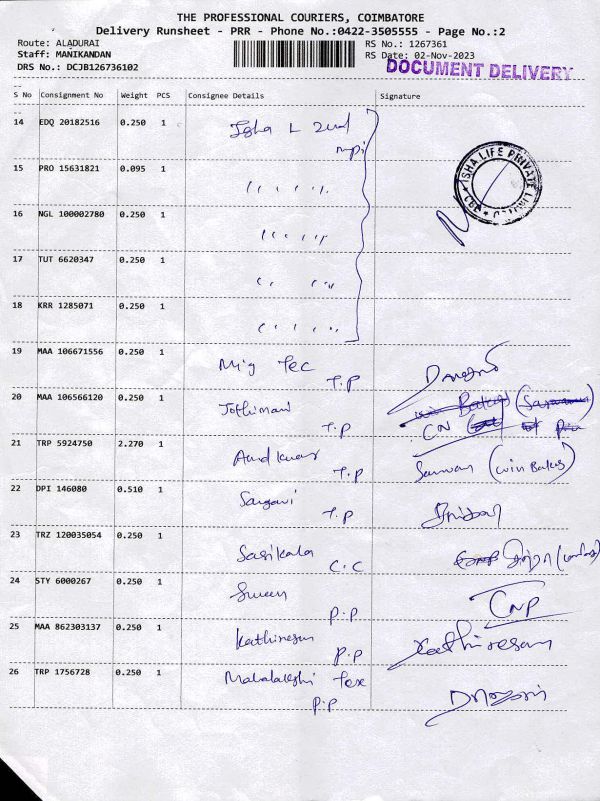 THE PROFESSIONAL COURIERS, COIMBATORE
Delivery Runsheet - PRR - Phone No.:0422-3505555 - Page No.:2
Route: ALADURAI
RS No.: 1267361
Staff: MANIKANDAN
RS Date: 02-Nov-2023
DRS No.: DCJB126736102
DOCUMENT DELIVERY
S No Consignment No Weight PCS Consignee Details Signature
14 EDQ 20182516 0.250 1 Isha L
ISHA LIFE PRIVATE LIMITED CBE
15 PRO 15631821 0.095 1 " " "
16 NGL 100002780 0.250 1 " " "
17 TUT 6620347 0.250 1 " "
18 KRR 1285071 0.250 1 " " "
19 MAA 106671556 0.250 1 Mig Tec
T.P
20 MAA 106566120 0.250 1 Jothimani
T.P CN
21 TRP 5924750 2.270 1
T.P (win Bakes)
22 DPI 146080 0.510 1
T.P
23 TRZ 120035054 0.250 1 Sasikala
C.C
24 STY 6000267 0.250 1
P.P CNP
25 MAA 862303137 0.250 1 Kathiresan
P.P Kathiresan
26 TRP 1756728 0.250 1 Mahalakshi Tex
P.P